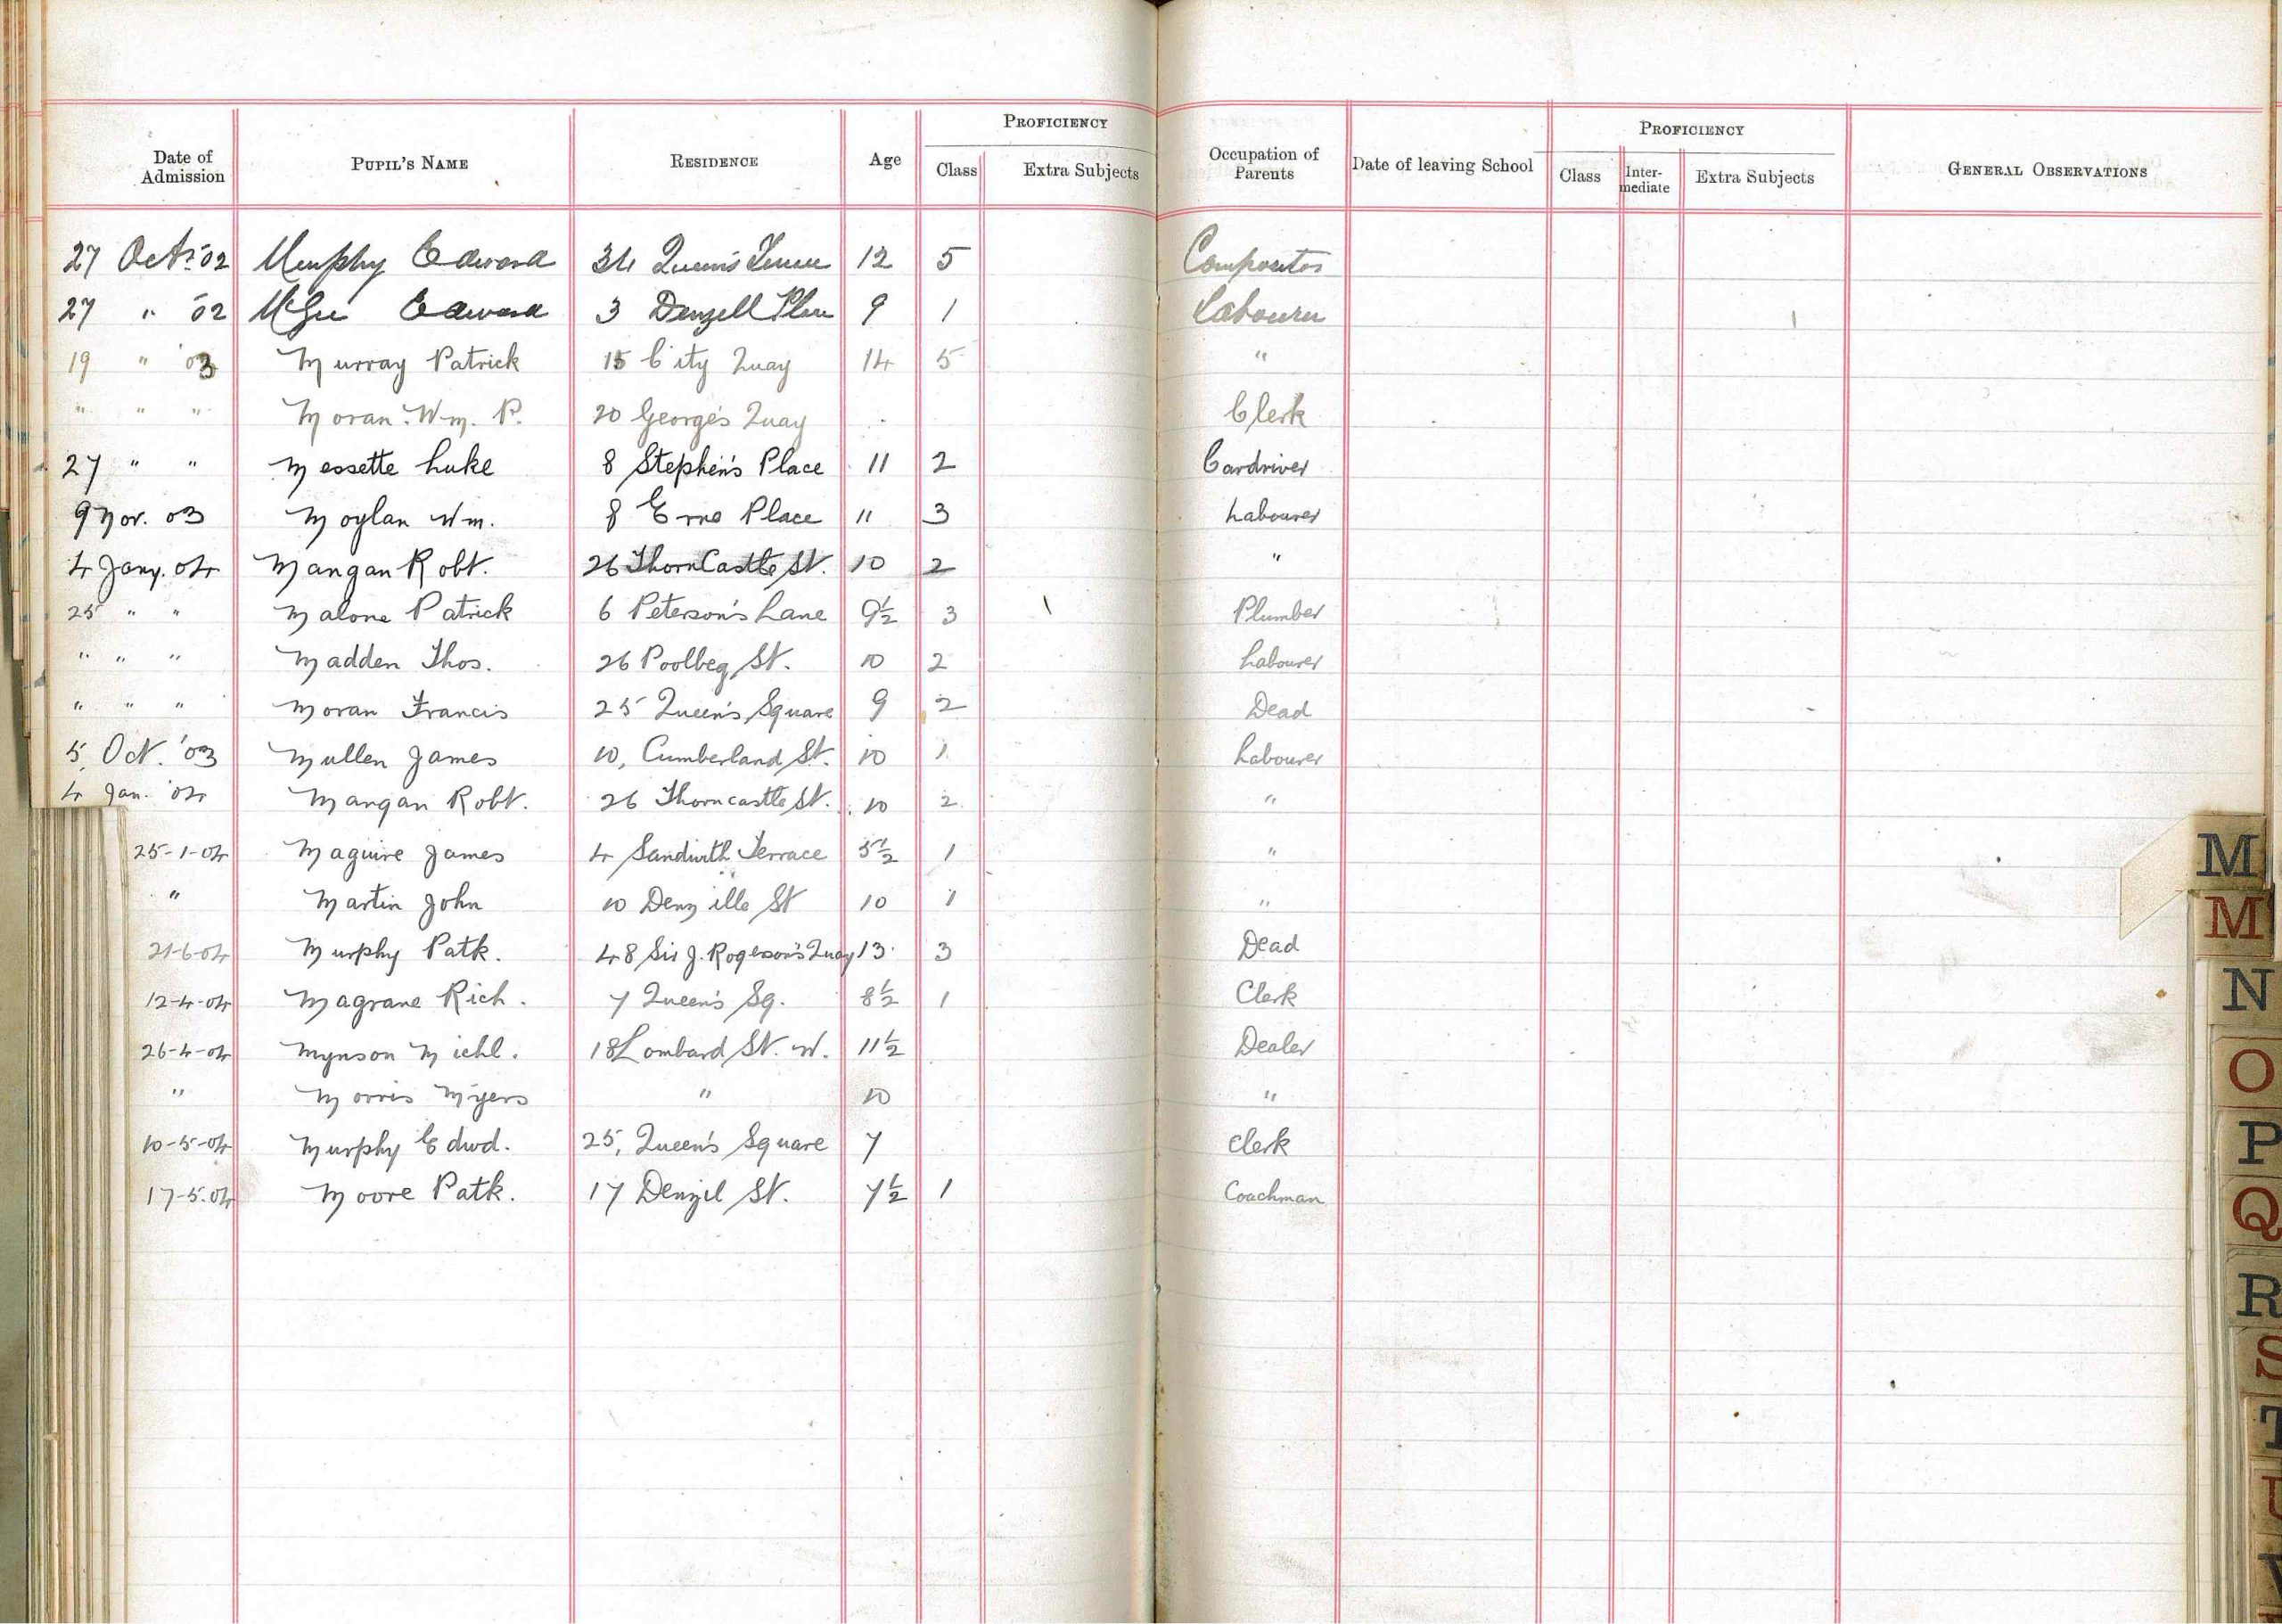 PROFICIENCY PROFICIENCY
Date of Admission PUPIL'S NAME RESIDENCE Age Class Extra Subjects Occupation of Parents Date of leaving School Class Inter-mediate Extra Subjects GENERAL OBSERVATIONS
27 Oct. '02 Murphy Edward 34 Queen's 12 5 Compositor
27 " '02 McGee Edward 3 Denzell Place 9 1 Labourer
19 " '03 Murray Patrick 15 City Quay 14 5 "
" " " Moran Wm. P. 20 George's Quay Clerk
27 " " Messette Luke 8 Stephen's Place 11 2 Cardriver
9 Nov. 03 Moylan Wm. 8 Erne Place 11 3 Labourer
4 Jany. 04 Mangan Robt. 26 ThornCastle St. 10 2 "
25 " " Malone Patrick 6 Peterson's Lane 9½ 3 Plumber
" " " Madden Thos. 26 Poolbeg St. 10 2 Labourer
" " " Moran Francis 25 Queen's Square 9 2 Dead
5, Oct. '03 Mullen James 10, Cumberland St. 10 1 Labourer
4 Jan. '04 Mangan Robt. 26 Thorncastle St. 10 2 "
25-1-04 Maguire James 4 Sandwith Terrace 5½ 1 "
" Martin John 10 Denzille St 10 1 "
21-6-04 Murphy Patk. 48 Sir J. Rogerson's Quay 13 3 Dead
12-4-04 Magrane Rich. 7 Queen's Sq. 8½ 1 Clerk
26-4-04 Mynson Michl. 18 Lombard St. W. 11½ Dealer
" Morris Myers " 10 "
10-5-04 Murphy Edwd. 25, Queen's Square 7 Clerk
17-5-04 Moore Patk. 17 Denzil St. 7½ 1 Coachman
M
M
N
O
P
Q
R
S
T
U
V